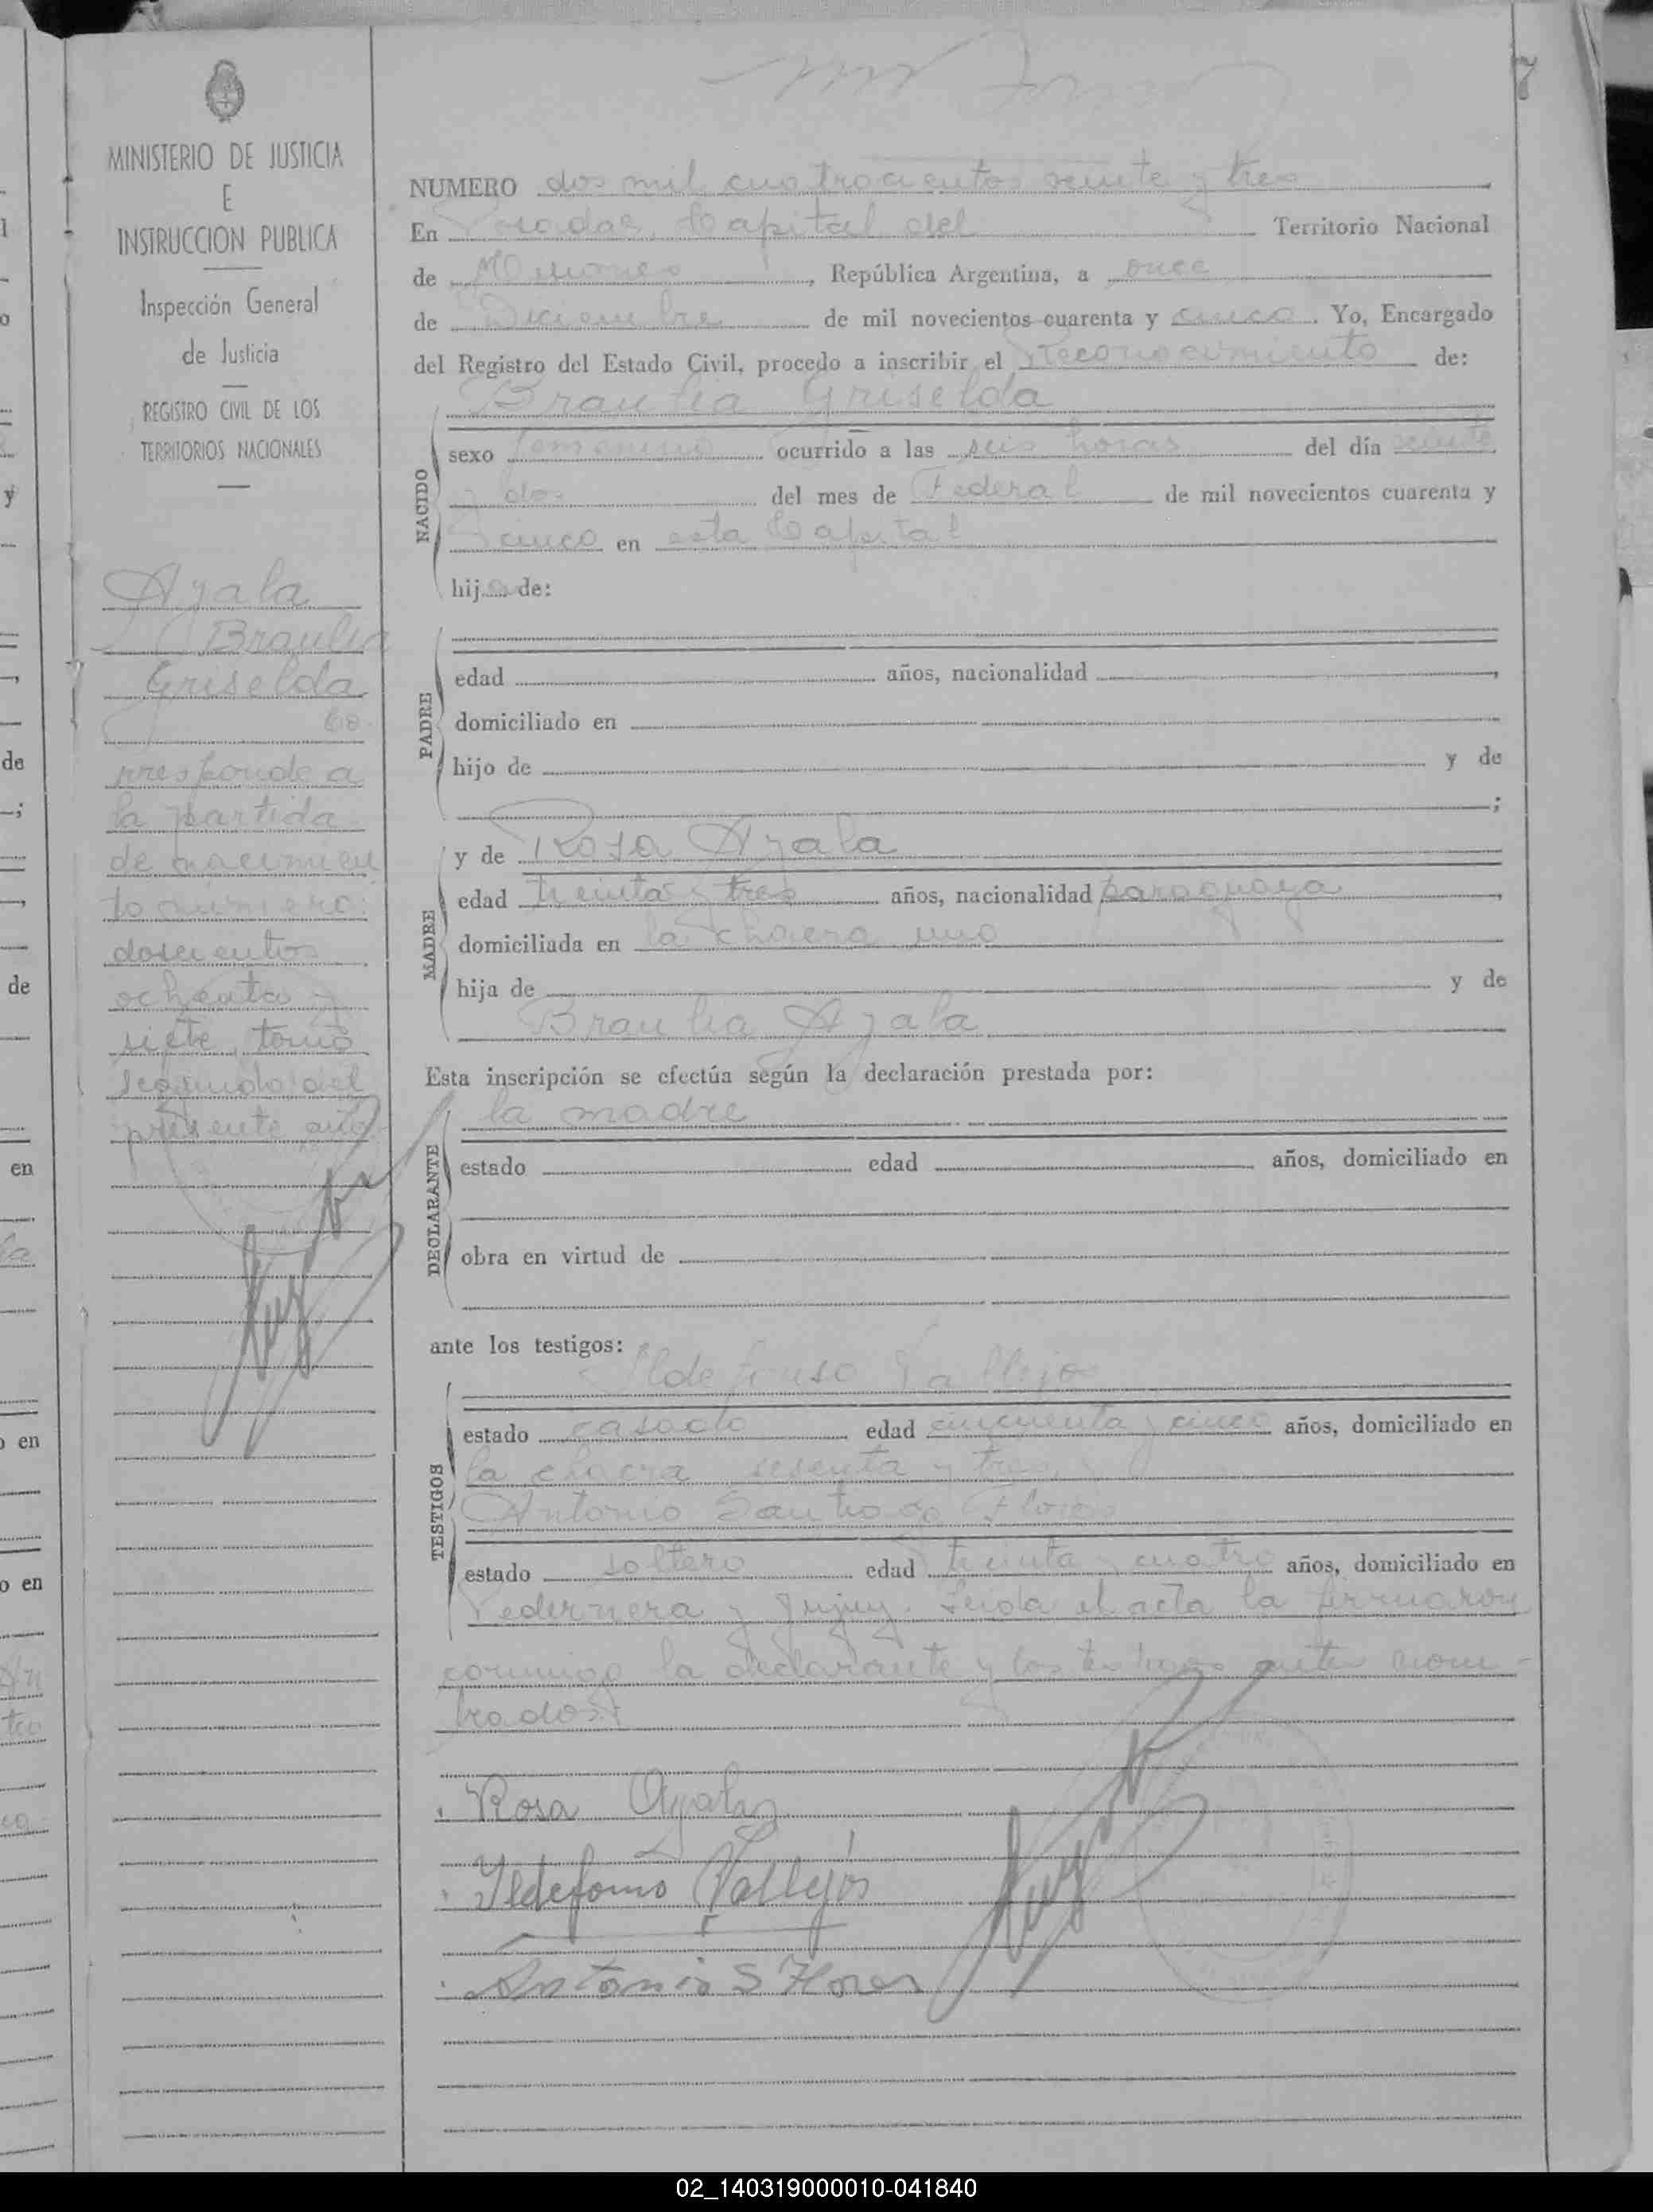 7
MINISTERIO DE JUSTICIA
E
INSTRUCCION PUBLICA
Inspección General
de Justicia
REGISTRO CIVIL DE LOS
TERRITORIOS NACIONALES
Ayala
Braulia
Griselda
Co
rresponde a
la partida
de nacimien
to número:
doscientos
ochenta y
siete, tomo
segundo del
presente año
NUMERO dos mil cuatrocientos veinte y tres
En Posadas, Capital del Territorio Nacional
de Misiones, República Argentina, a once
de Diciembre de mil novecientos cuarenta y cinco. Yo, Encargado
del Registro del Estado Civil, procedo a inscribir el Reconocimiento de:
Braulia Griselda
NACIDO
sexo femenino ocurrido a las seis horas del día veinte
y dos del mes de Federal de mil novecientos cuarenta y
cinco en esta Capital
hija de:
PADRE
edad años, nacionalidad ,
domiciliado en
hijo de y de
;
MADRE
y de Rosa Ayala
edad treinta y tres años, nacionalidad paraguaya,
domiciliada en la chacra uno
hija de y de
Braulia Ayala
Esta inscripción se efectúa según la declaración prestada por:
DECLARANTE
la madre
estado edad años, domiciliado en
obra en virtud de
ante los testigos:
TESTIGOS
Ildefonso Vallejos
estado casado edad cincuenta y cinco años, domiciliado en
la chacra sesenta y tres y
Antonio Santiago Flores
estado soltero edad treinta y cuatro años, domiciliado en
Pedernera y Jujuy. Leida el acta la firmaron
conmigo la declarante y los testigos antes nom-
brados.
Rosa Ayala
Ildefonso Vallejos
Antonio S Flores
de
de
en
en
en
02_140319000010-041840